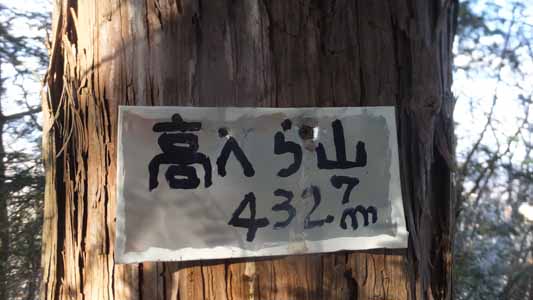 高へら山
4327m